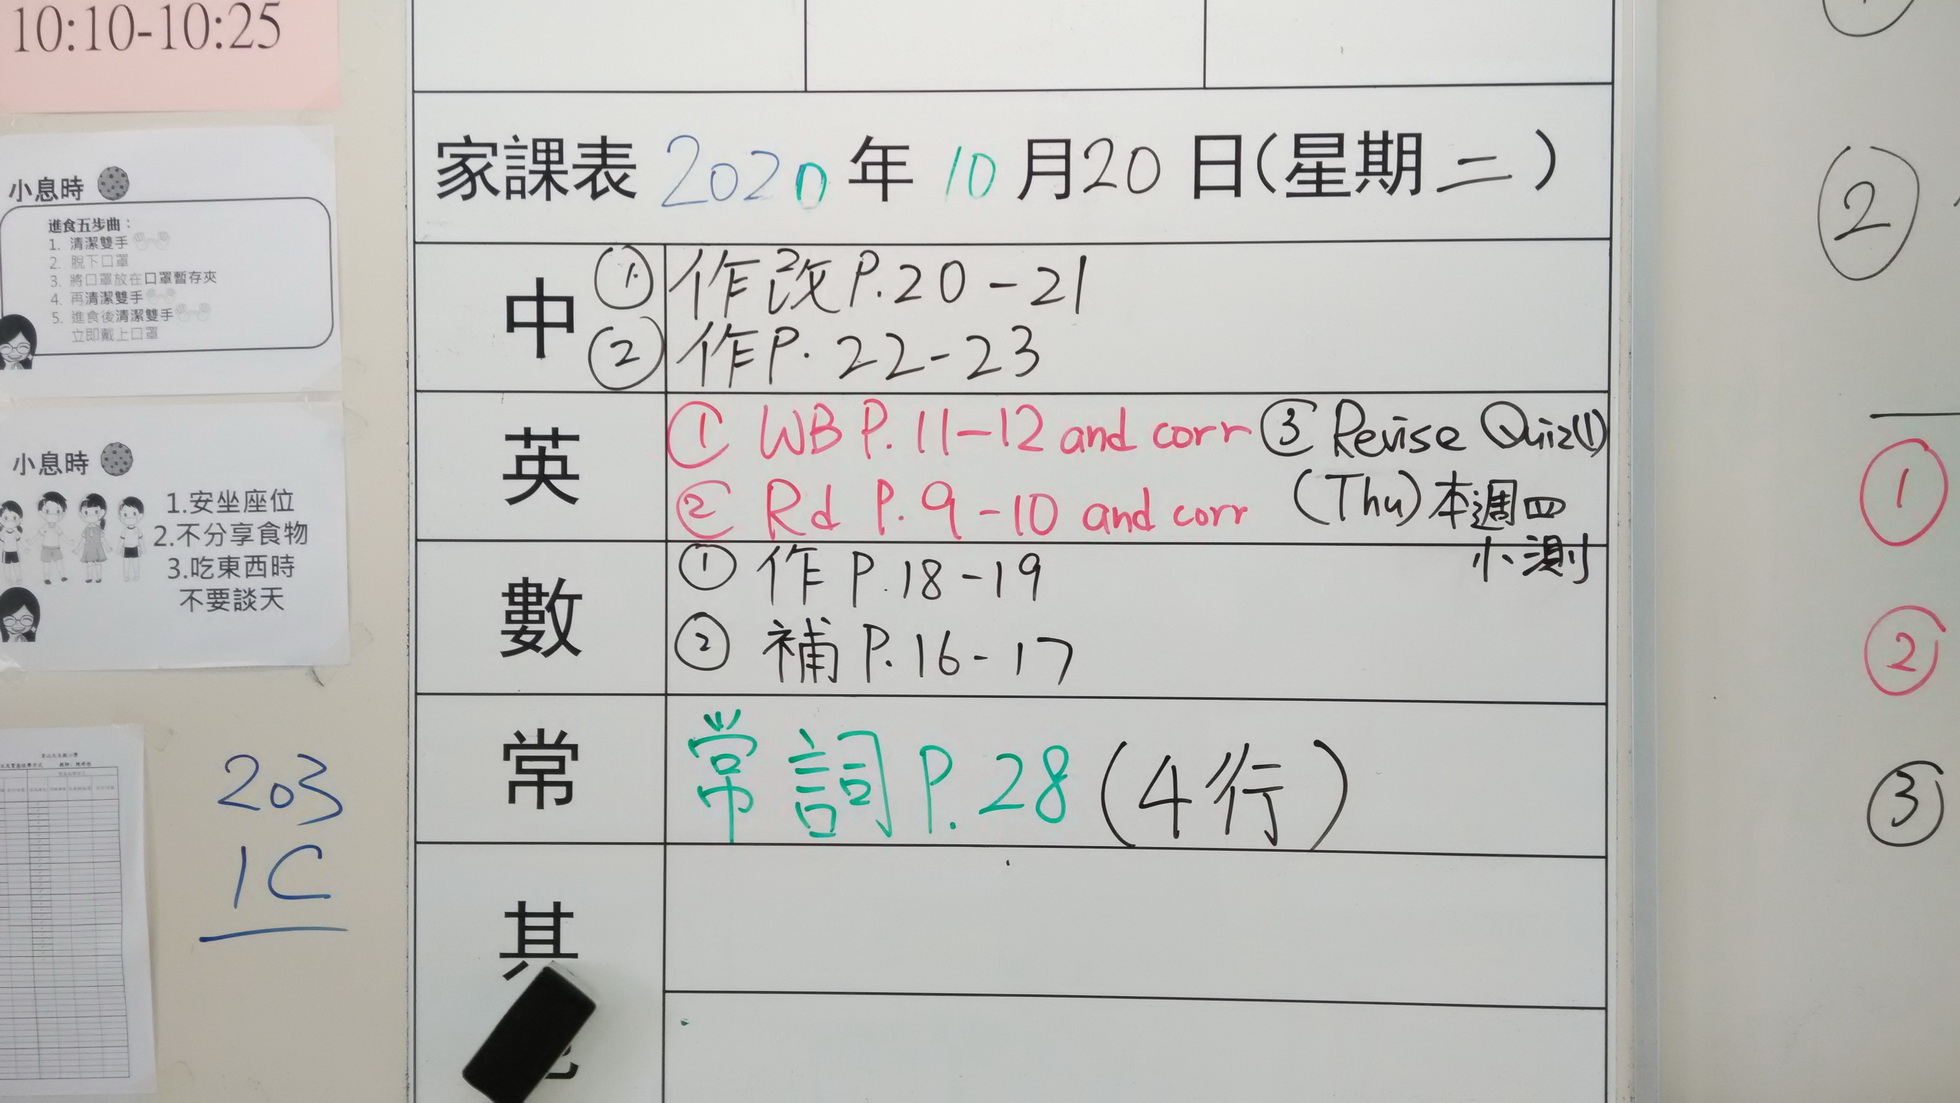 10:10-10:25
小息時
進食五步曲：
1. 清潔雙手
2. 脫下口罩
3. 將口罩放在口罩暫存夾
4. 再清潔雙手
5. 進食後清潔雙手
立即戴上口罩
小息時
1.安坐座位
2.不分享食物
3.吃東西時
不要談天
203
1C
家課表 2020 年 10 月 20 日(星期二)
中
① 作改 P.20-21
② 作 P. 22-23
英
① WB P. 11-12 and corr
② Rd P. 9-10 and corr
③ Revise Quiz(1)
(Thu) 本週四
小測
數
① 作 P.18-19
② 補 P.16-17
常
常詞 P.28 (4行)
其
②
①
②
③